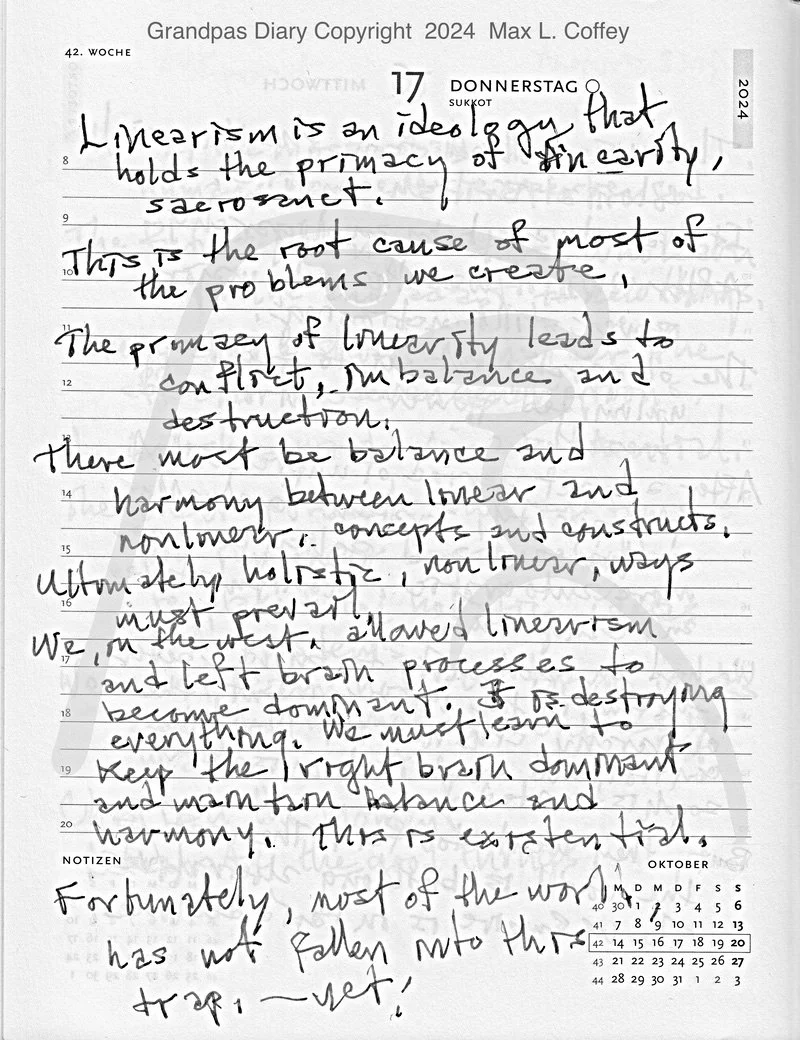 Grandpas Diary Copyright 2024 Max L. Coffey
42. WOCHE
17 DONNERSTAG
SUKKOT
2024
Linearism is an ideology that
8 holds the primacy of linearity,
sacrosanct.
9
This is the root cause of most of
10 the problems we create.
11
The primacy of linearity leads to
12 conflict, imbalance and
destruction.
13
There most be balance and
14 harmony between linear and
nonlinear concepts and constructs.
15
Ultimately, holistic, nonlinear, ways
16 must prevail.
We, in the west, allowed linearism
17 and left brain processes to
become dominant. It is destroying
18 everything. We must learn to
19 Keep the right brain dominant
and maintain balance and
20 harmony. This is existential.
NOTIZEN
Fortunately, most of the world,
has not fallen into this
trap, — yet!
OKTOBER
M D M D F S S
40 30 1 2 3 4 5 6
41 7 8 9 10 11 12 13
42 14 15 16 17 18 19 20
43 21 22 23 24 25 26 27
44 28 29 30 31 1 2 3